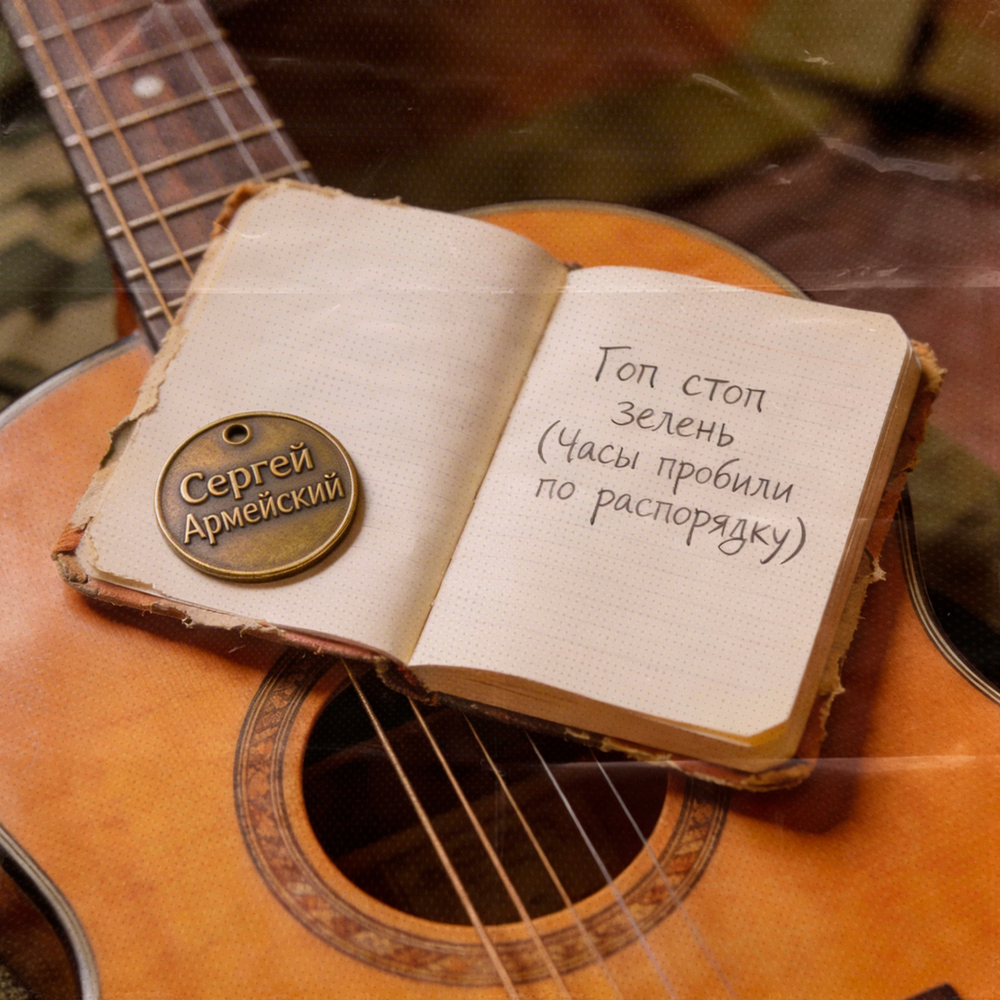 Сергей
Армейский
Гоп стоп
зелень
(Часы пробили
по распорядку)